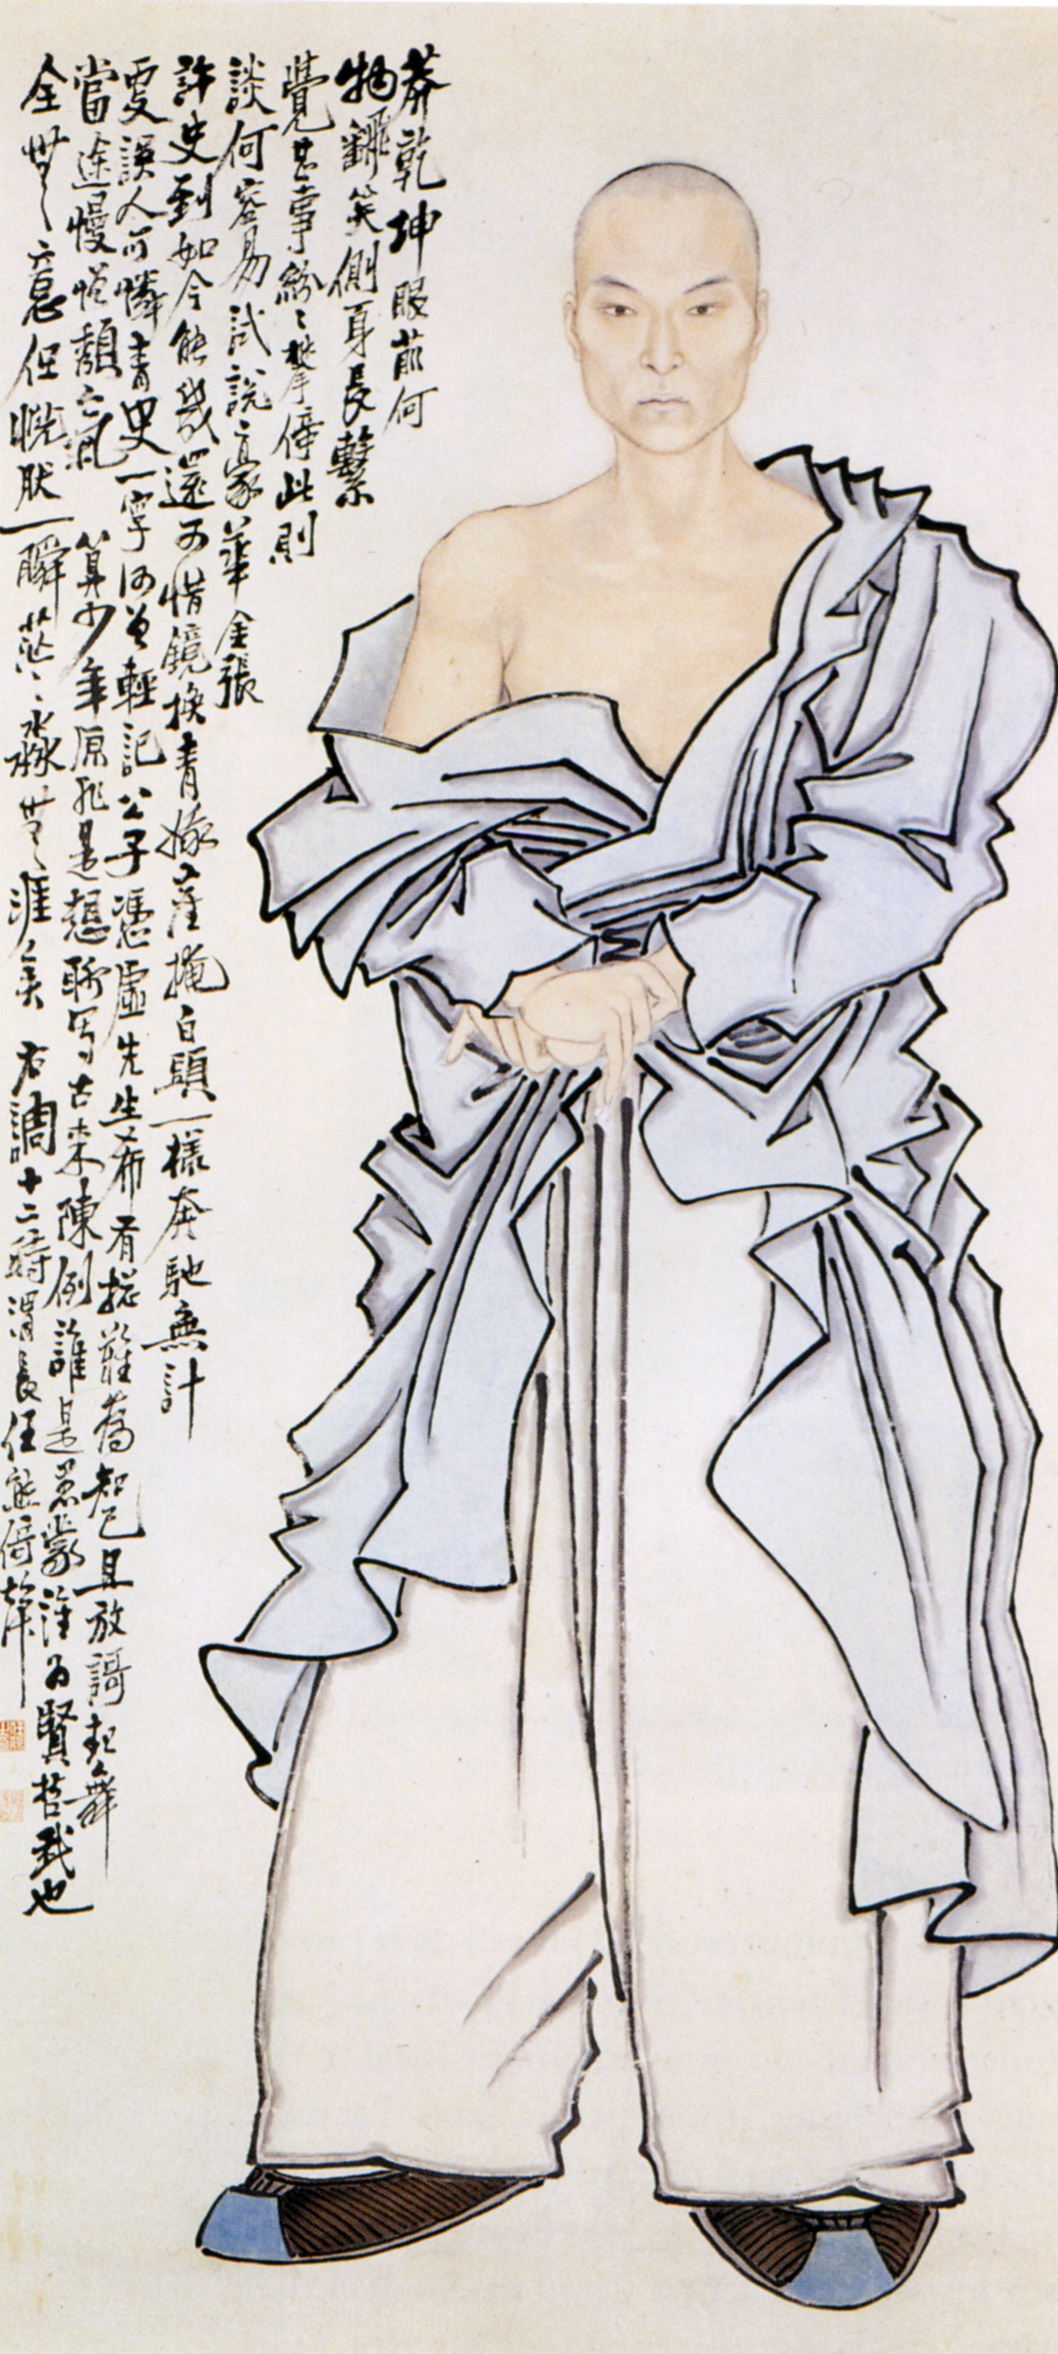 莽乾坤眼前何
物翻笑側身長繫
覺甚事紛〻攀倚此則
談何容易試說豪華金張
許史到如今能幾還可惜鏡換青娥塵掩白頭一樣奔馳無計
更誤人可憐青史一字何曾輕記公子憑虛先生希有總難為知己且放謌起舞
當途慢憎頹氣算少年原非是想聊寫古來陳例誰是愚蒙誰為賢哲我也
全無意但恍肰一瞬茫〻淼無涯矣右調十二時渭長任熊倚聲